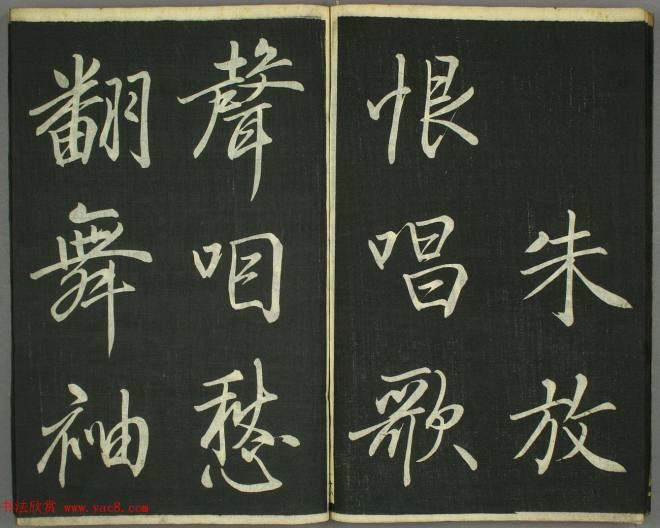 朱放
恨唱歌
聲咽愁
翻舞袖
书法欣赏 www.yac8.com